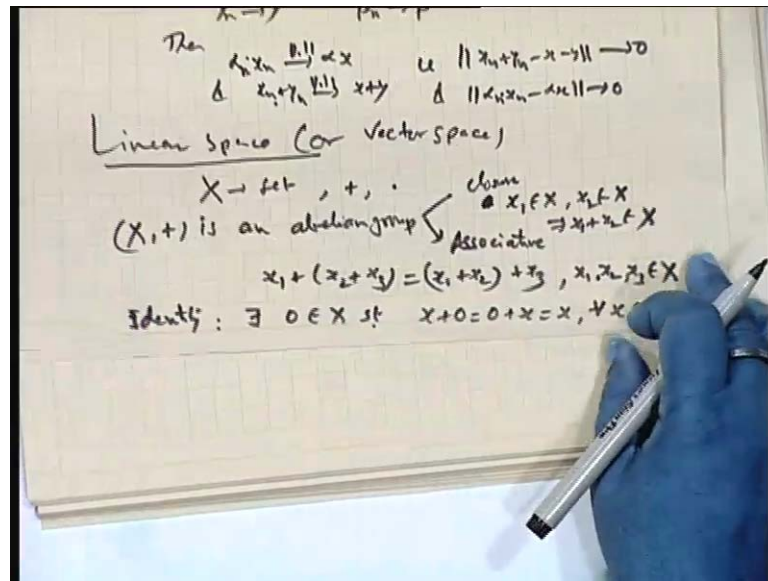 Then αₙxₙ →(‖.‖) αx ie ‖xₙ+yₙ-x-y‖ → 0
& xₙ+yₙ →(‖.‖) x+y & ‖αₙxₙ-αx‖ → 0
Linear Space (or Vector space)
X → set , +, .
closure
(X,+) is an abelian group • x₁∈X, x₂∈X
⇒ x₁+x₂∈X
Associative
x₁+(x₂+x₃)=(x₁+x₂)+x₃, x₁,x₂,x₃∈X
Identity : ∃ 0∈X st. x+0=0+x=x, ∀x